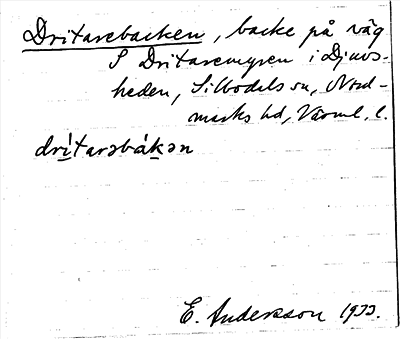 Dritarebacken, backe på väg
S Dritaremyren i Djuvs-
heden, Silbodals sn, Nord-
marks hd, Värml. l.
drítarəbákən
E. Andersson 1933.